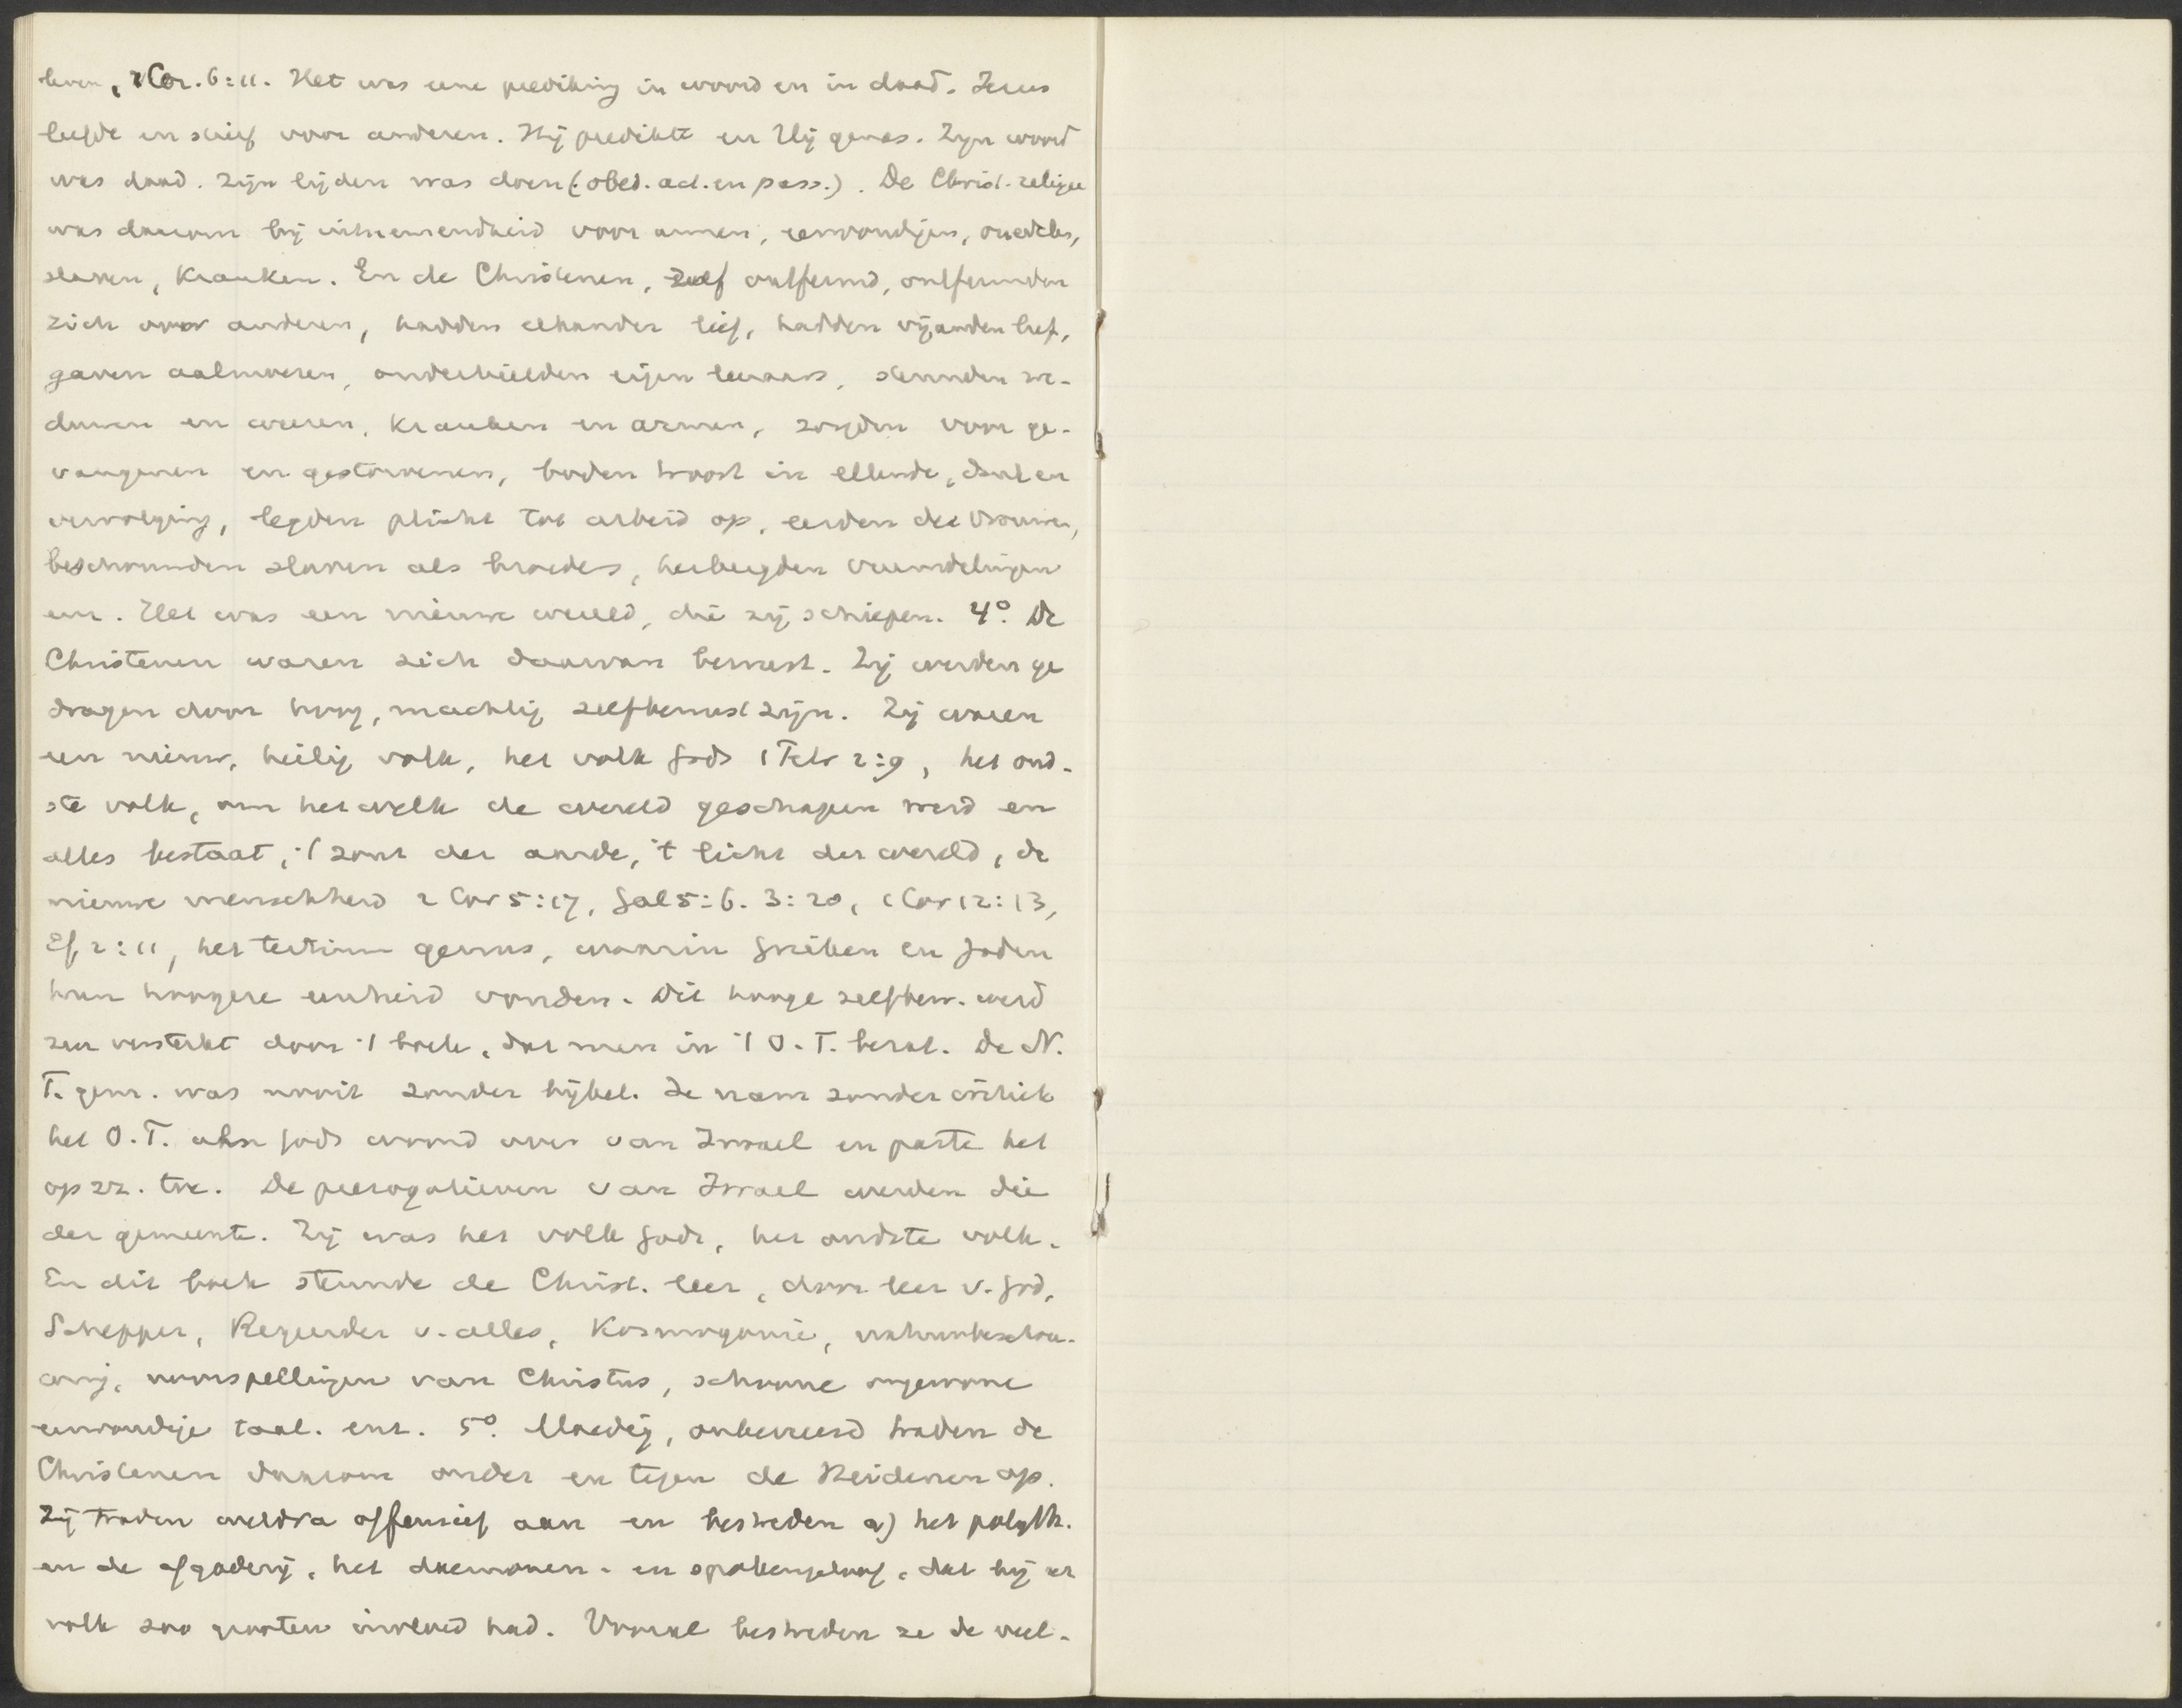 leven, 1 Cor. 6:11. Het was eene prediking in woord en in daad. Jezus
leefde en stierf voor anderen. Hij predikte en Hij genas. Zijn woord
was daad. Zijn lijden was doen (: obed. act. en pass.). De Christ. religie
was daarom bij uitnemendheid voor armen, eenvoudigen, onedelen,
slaven, kranken. En de Christenen, zelf ontfermd, ontfermden
zich over anderen, hadden elkander lief, hadden vijanden lief,
gaven aalmoezen, onderhielden eigen leeraars, steunden we-
duwen en weezen, kranken en armen, zorgden voor ge-
vangenen en gestorvenen, boden troost in ellende, dood en
vervolging, legden plicht tot arbeid op, eerden de vrouwen,
beschouwden slaven als broeders, herbergden vreemdelingen
enz. Het was een nieuwe wereld, die zij schiepen. 4º. De
Christenen waren zich daarvan bewust. Zij werden ge
dragen door hoog, machtig zelfbewustzijn. Zij waren
een nieuw, heilig volk, het volk Gods 1 Petr 2:9, het oud-
ste volk, om hetwelk de wereld geschapen werd en
alles bestaat, 't zout der aarde, 't licht der wereld, de
nieuwe menschheid 2 Cor 5:17, Gal 5:6. 3:20, 1 Cor 12:13,
Ef. 2:11, het tertium genus, waarin Grieken en Joden
hun hoogere eenheid vonden. Dit hooge zelfbew. werd
zeer versterkt door 't boek, dat men in 't O.T. bezat. De N.
T. gem. was nooit zonder bijbel. Ze nam zonder critiek
het O.T. als Gods woord over van Israel en paste het
op zz. toe. De prerogatieven van Israel werden die
der gemeente. Zij was het volk Gods, het oudste volk.
En dit boek steunde de Christ. leer, door leer v. God,
Schepper, Regeerder v. alles, Kosmogonie, natuurbeschou-
wing, voorspellingen van Christus, schoone ongewone
eenvoudige taal. enz. 5º. Moedig, onbevreesd traden de
Christenen daarom onder en tegen de Heidenen op.
Zij traden weldra offensief aan en bestreden a) het polyth.
en de afgoderij, het daemonen- en spokengeloof, dat bij het
volk zoo grooten invloed had. Vooral bestreden ze de veel-